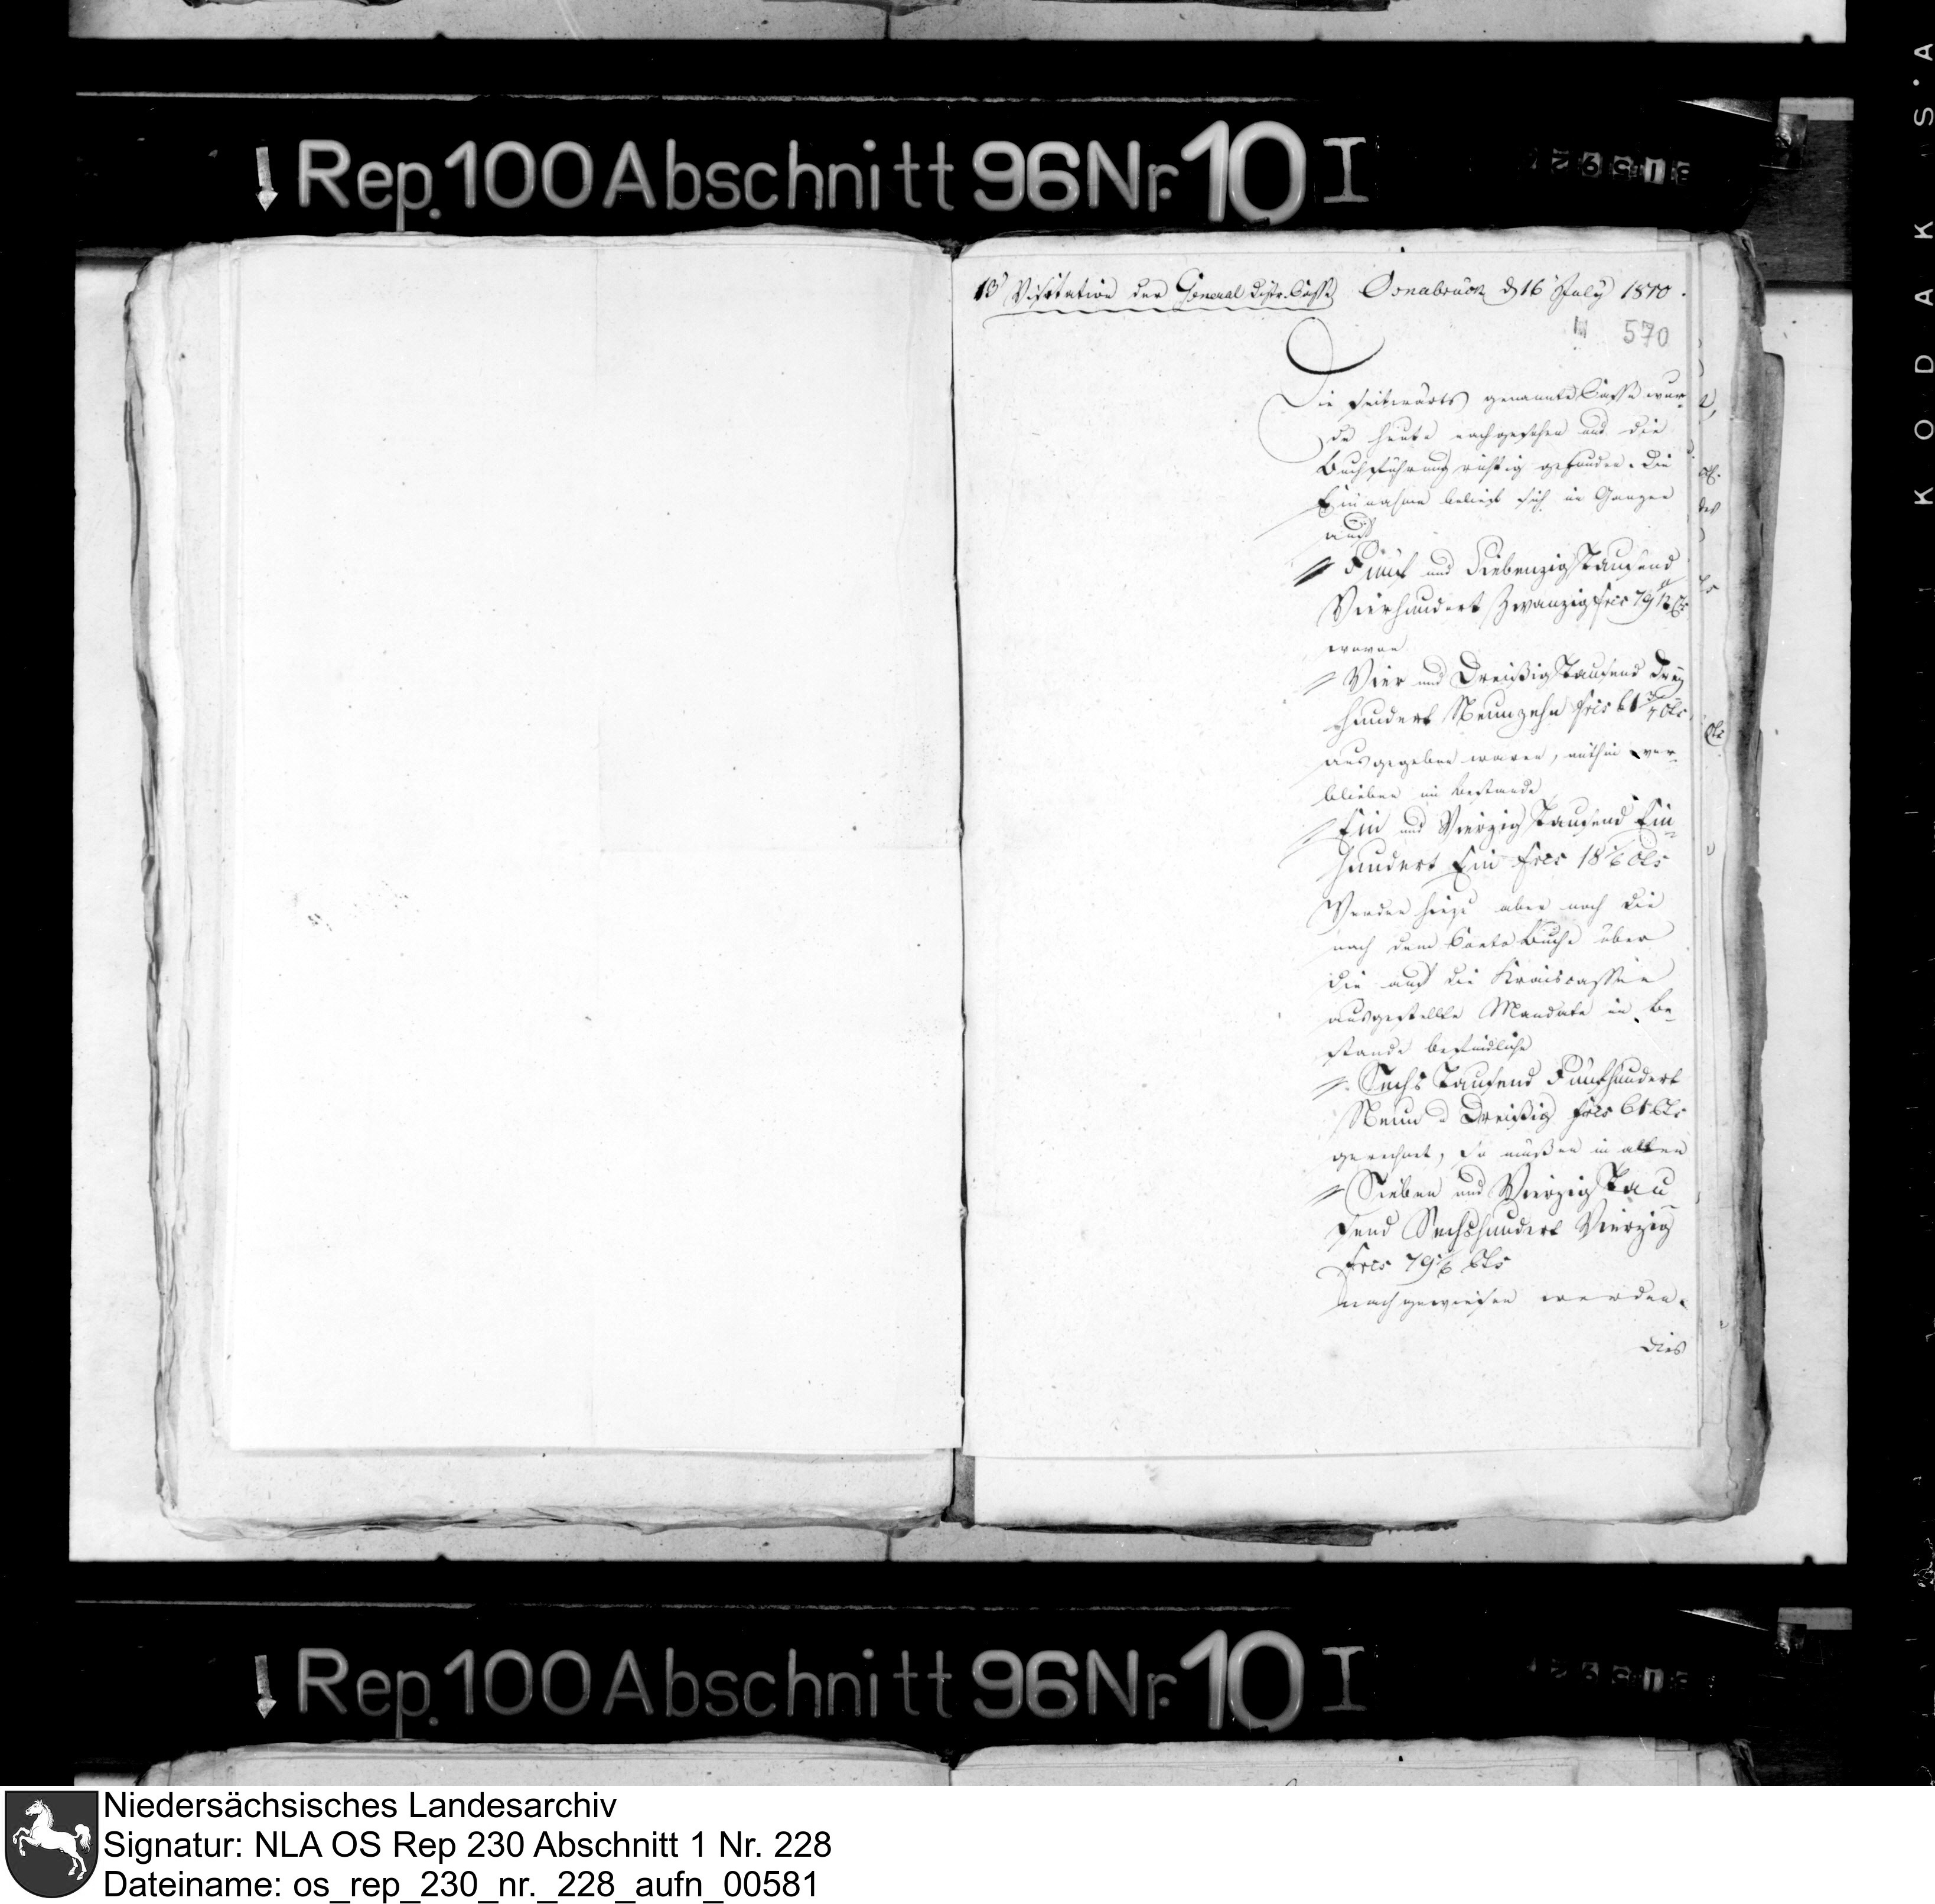 Rep. 100 Abschnitt 96 Nr. 10 I
13 Visitation der General Distr. Casse Osnabrück d 16 July 1810.
570
Die seitwärts genannte Casse wur-
de heute nachgesehen und die
Buchführung richtig gefunden. Die
Einnahme belief sich im Ganzen
auf
Fünf und Siebenzig Tausend
Vierhundert Zwanzig frcs 79
wovon
Vier und Dreißig Tausend Drey
hundert Neunzehn frcs 61 Cts
ausgegeben waren, mithin ver-
blieben im Bestande
Ein und Vierzig Tausend Ein-
hundert Ein frcs 18 1/6 Cts
Werden hiezu aber noch die
nach dem Conto Buche über
die auf die Kreiscassen
ausgestellte Mandate in Be-
stande befindliche
Sechs Tausend Fünfhundert
Neun u Dreißig frcs 61 Cts
gerechnet, so müßen in allen
Sieben und Vierzig Tau-
send Sechshundert Vierzig
frcs 79 1/6 Cts
nachgewiesen werden.
dies
Rep. 100 Abschnitt 96 Nr. 10 I
KODAK S·A
Niedersächsisches Landesarchiv
Signatur: NLA OS Rep 230 Abschnitt 1 Nr. 228
Dateiname: os_rep_230_nr._228_aufn_00581